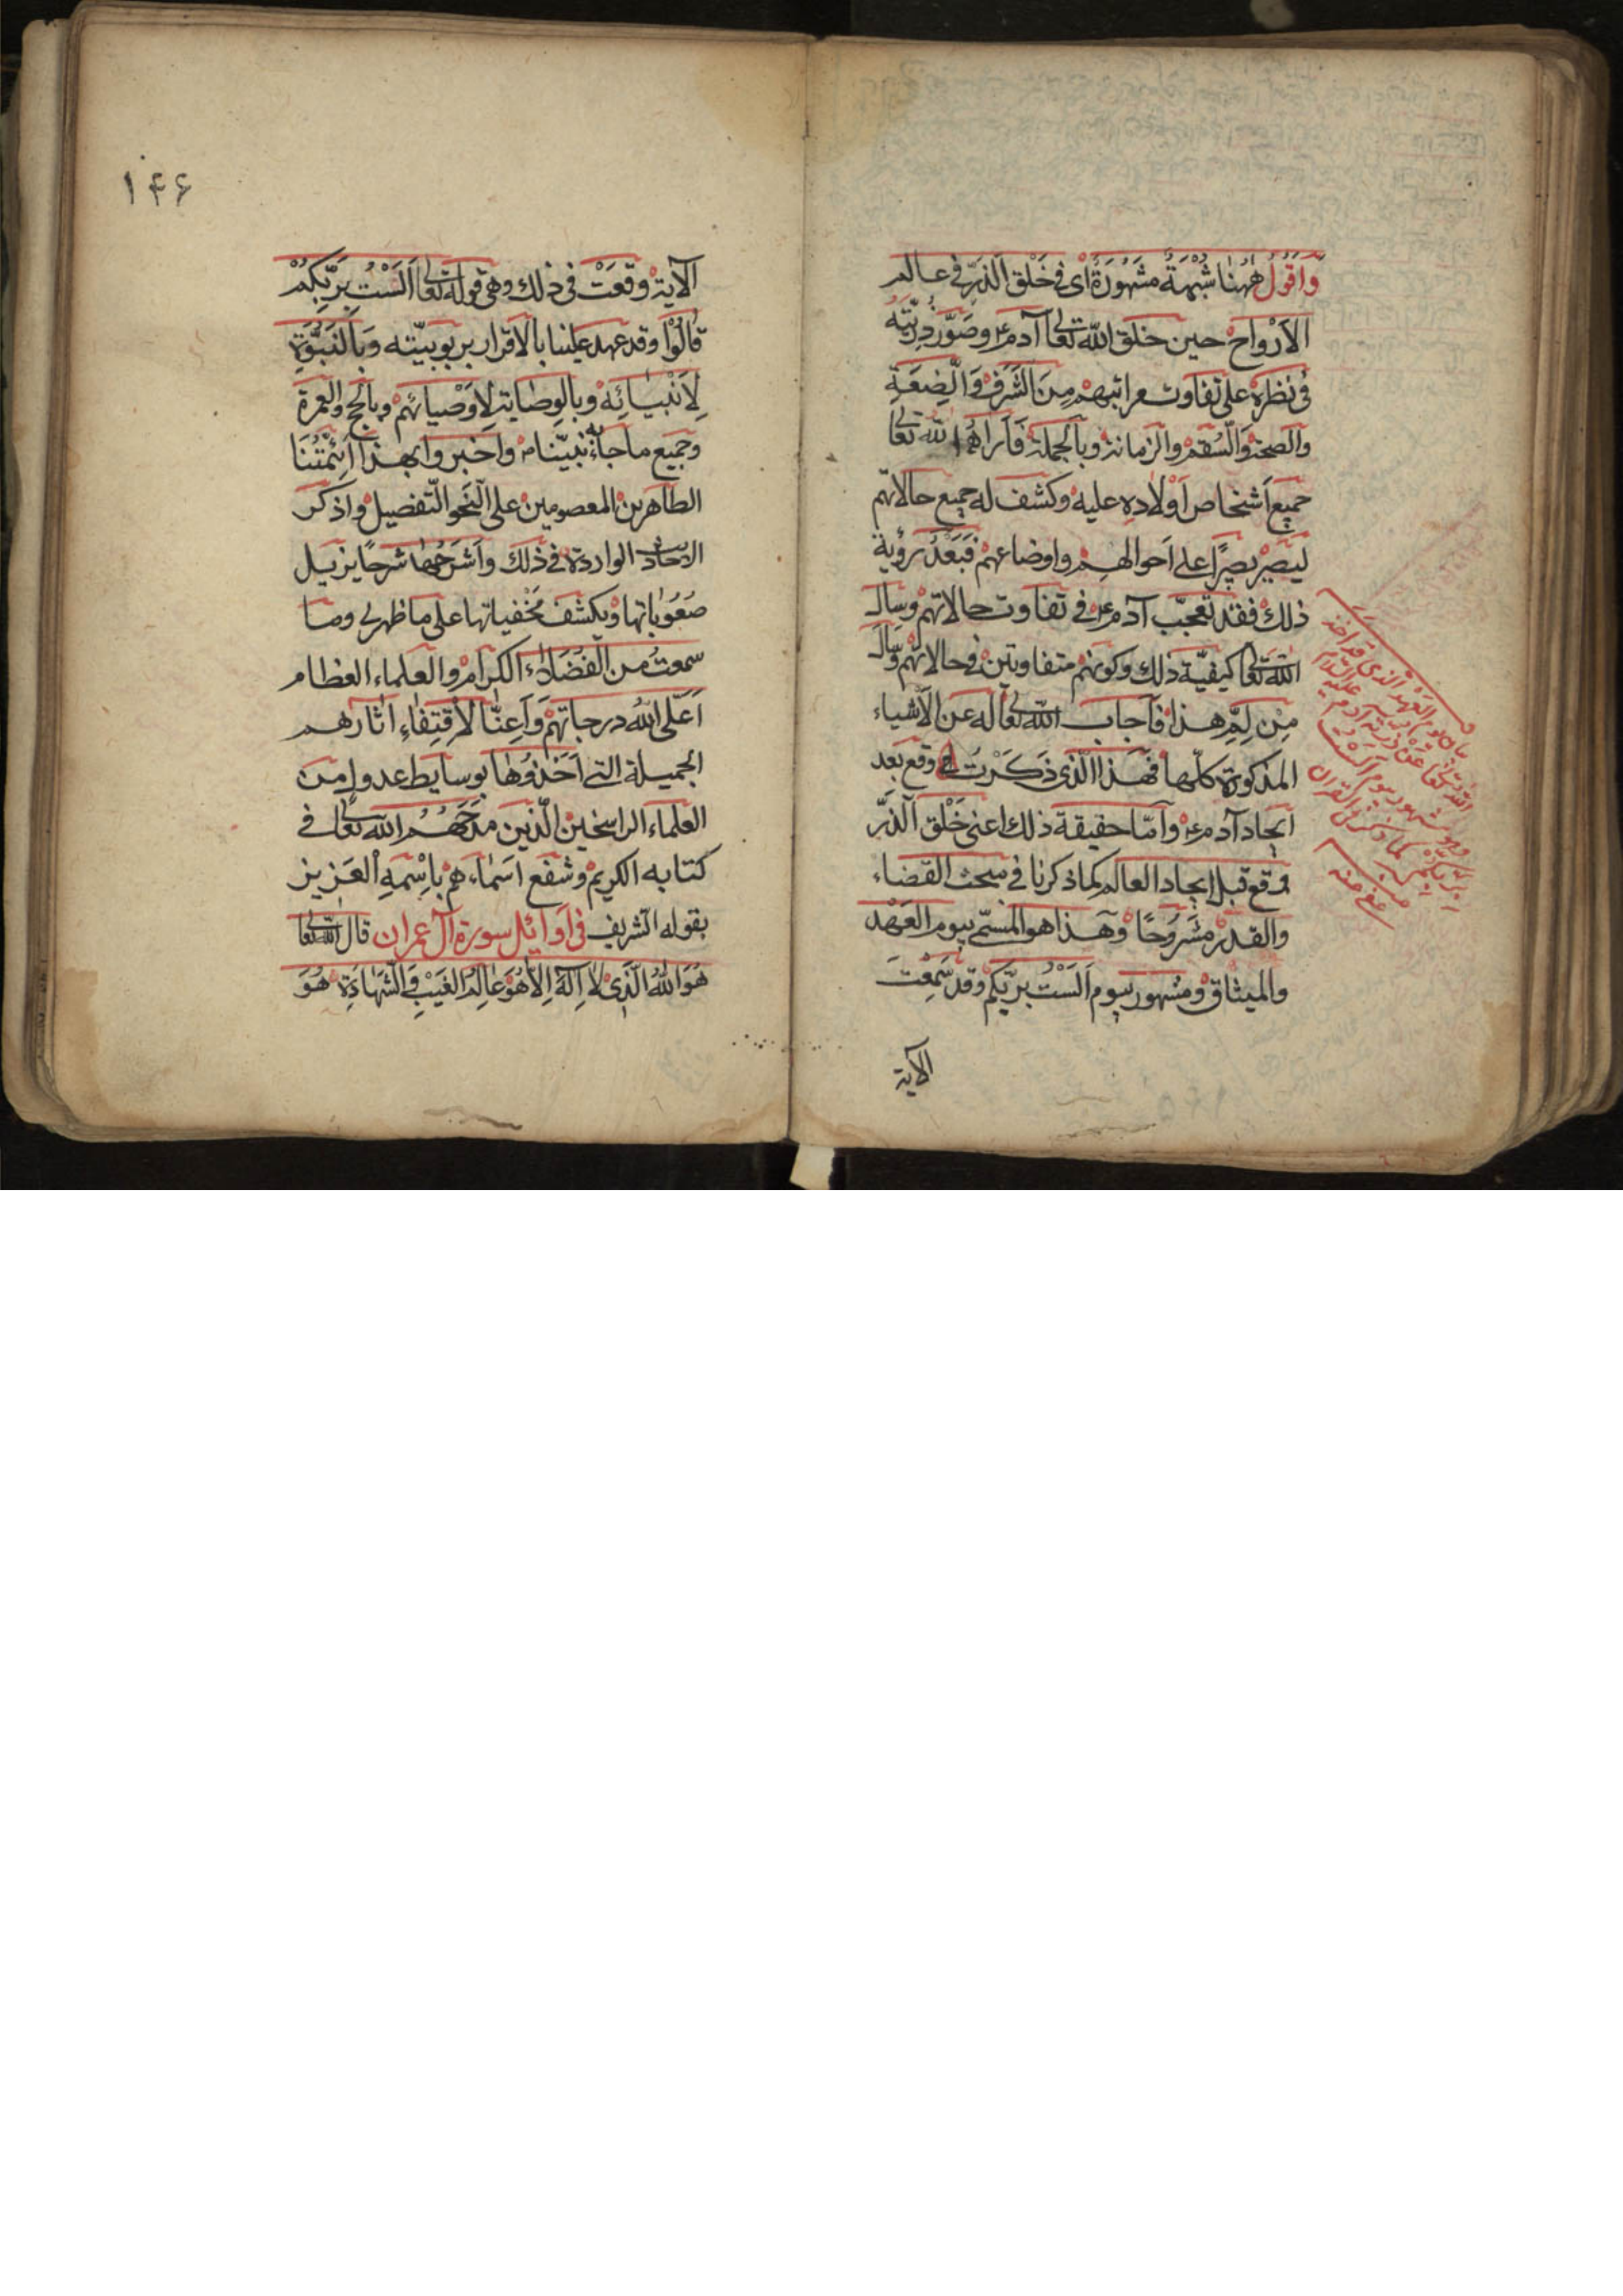 وَاَقُولُ هٰهُنا شُبْهَةٌ مَشهُورَةٌ اى فى خَلْق الذرّ فى عالم
الاَرْواح حين خلق اللّه تعالى آدم ع و صَوَّر ذرّيّته
فى نظره على تفاوت مراتبهم مِنَ الشَرَف وَالضِعَةِ
والصحة والسُقم والزمانة وبالجملة فَاَراهُ اللّه تعالى
جميع اَشخاص اَوْلاده عليه وكشف له جميع حالاتهم
ليَصيْر بصيرًا على اَحوالهم واوضاعهم فَبَعْدَ رؤية
ذلك فقد تعجّب آدم ع فى تفاوت حالاتهم وسال
اللّه تعالى كيفيّة ذلك وكونهم متفاوتين فى حالاتهم وسال
مِن لِمَ هذا فاَجاب اللّه تعالى له عن الاَشياء
المذكورة كلّها فهذا الّذى ذَكَرْتُ وقع بعد
ايجاد آدم ع وامّا حقيقة ذلك اعنى خَلْق الذَرّ
وقع قبل ايجاد العالم كما ذكرنا فى مبحث القضاء
والقدر مَشرُوحًا وهذا هو المسمّى بيوم العَهْد
والميثاق ومشهور بيوم اَلَسْتُ بربّكم وقد سَمِعْتَ
الآية
بيان يوم العهد الذى قد اخذ
اللّه تعالى عن ذريّة آدم عليه السّلام
وهو مشهور بيوم اَلَسْتُ
بربّكم كما وقع فى القرآن
منه
عفى عنه
۱۴۶
الآية وقعَتْ فى ذلك وهى قوله تعالى اَلَسْتُ بِرَبِّكُمْ
قالُوا وقد عهد علينا بالاقرار بربوبيّته وَبالنَبُوَّة
لِاَنْبيائِه وبالوِصاية لِاَوْصيائهم وبالحج والعمرة
وجميع ماجاء به نبيّنا م واخبروا بهذا اَئمّتُنَا
الطاهرين المعصومين على النَحو التّفصيل واذكر
الاحاديث الواردة فى ذلك واَشرَحُها شرحًا يزيل
صُعُوباتها ويكشف مَخْفياتها على ما ظهر لى وما
سمعتُ من الفُضَلاء الكرام والعلماء العظام
اَعْلَى اللّهُ درجاتهم وَاَعِنّا لاِقْتِفاءِ اثارهم
الجميلة التى اَخَذُوها بوسايط عدول من
العلماء الراسخين الّذين مدَحَهُم اللّه تعالى فى
كتابه الكريم وشفع اسَماءهم بِاسْمِهِ الْعَزيز
بقوله الشريف فى اَوائل سورة آل عمران قال اللّه تعالى
هُوَ اللّهُ الَّذى لا اِلهَ اِلاّ هُوَ عالِمُ الغَيْبِ وَالشَّهادَةِ هُوَ